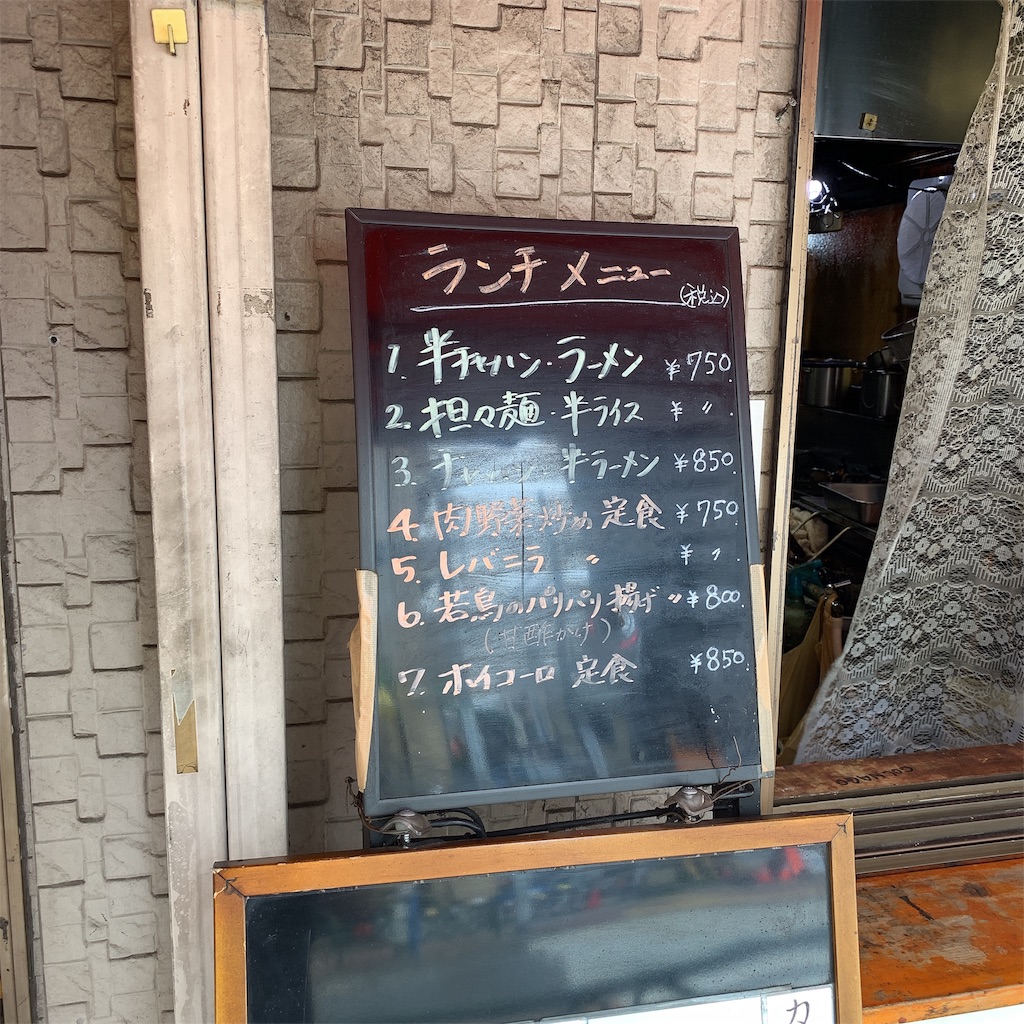 ランチメニュー
(税込)
1. 半チャーハン・ラーメン ¥750.
2. 担々麺・半ライス ¥ 〃.
3. 半ラーメン ¥850.
4. 肉野菜炒め 定食 ¥750
5. レバニラ 〃 ¥ 〃
6. 若鳥のパリパリ揚げ 〃 ¥800.
(甘酢がけ)
7. ホイコーロ 定食 ¥850.
カ